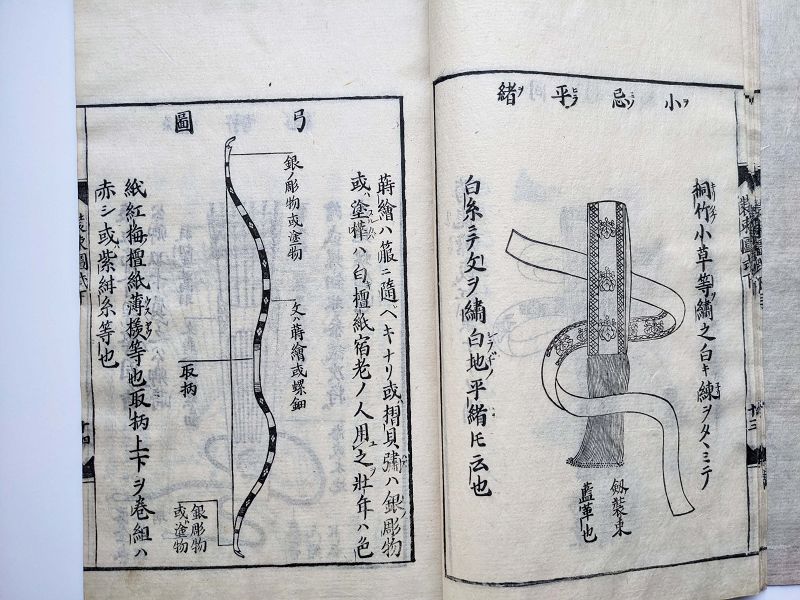 小忌平緒
桐竹小草等ヲ繍之白キ練ヲタヽミテ
劔装束
藍革也
白糸ニテ文ヲ繍白地平緒トモ云也
十三
弓圖
蒔繪ハ箙ニ隨ベキナリ或摺貝彇ハ銀ノ彫物
或ハ塗樺ハ白檀紙宿老ノ人用之壮年ハ色
銀ノ彫物或塗物
文ハ蒔繪或螺鈿
取柄
銀彫物
或ハ塗物
紙紅梅檀紙薄様等也取柄上下ヲ巻組ハ
赤シ或紫紺糸等也
装束圖式下
十四